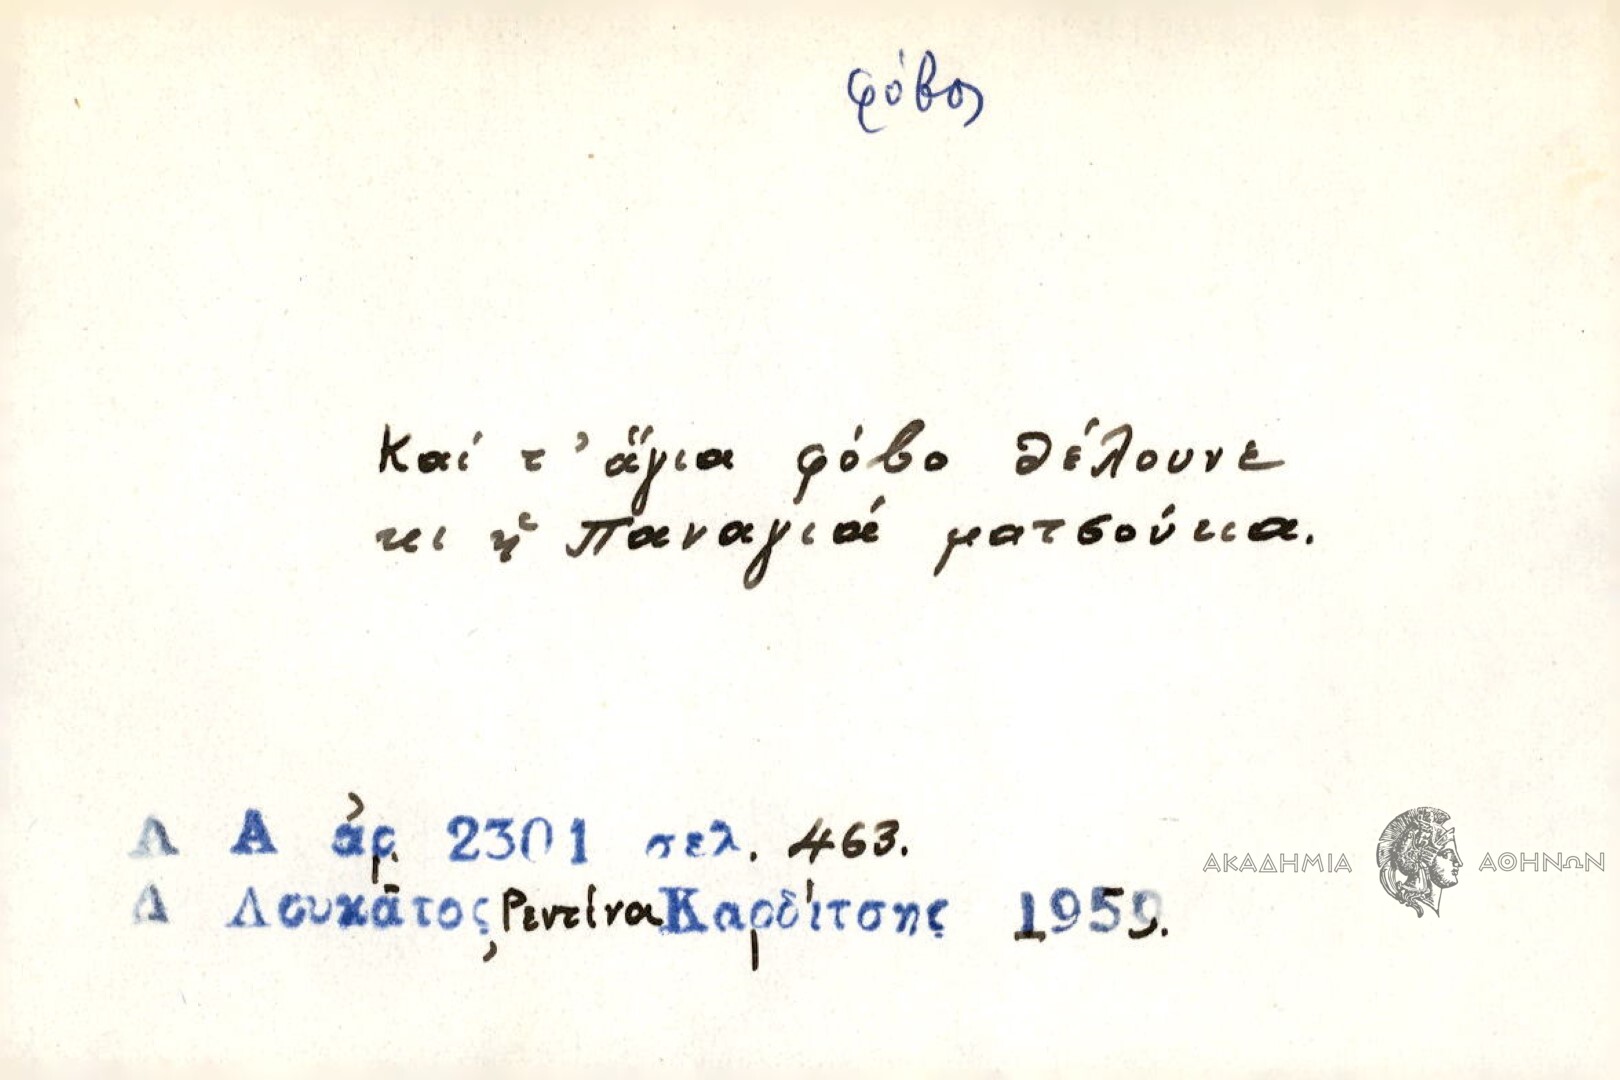 φόβος
Καί τ' ἅγια φόβο θέλουνε
κι ἡ Παναγιά ματσούκια.
Λ Α ἀρ. 2301 σελ. 463.
Δ Λουκᾶτος, Ρεντίνα Καρδίτσης 1959.
ΑΚΑΔΗΜΙΑ ΑΘΗΝΩΝ